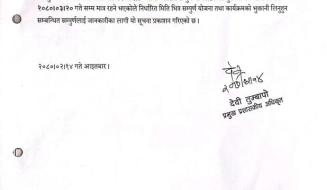 २०८०।०३।२० गते सम्म मात्र रहने भएकोले निर्धारित मिति भित्र सम्पुर्ण योजना तथा कार्यक्रमको भुक्तानी लिनुहुन
सम्बन्धित सम्पुर्णलाई जानकारीका लागी यो सूचना प्रकाशन गरिएको छ ।
२०८०।०२।१४ गते आइतबार ।
देवी तुम्बापो
प्रमुख प्रशासकीय अधिकृत